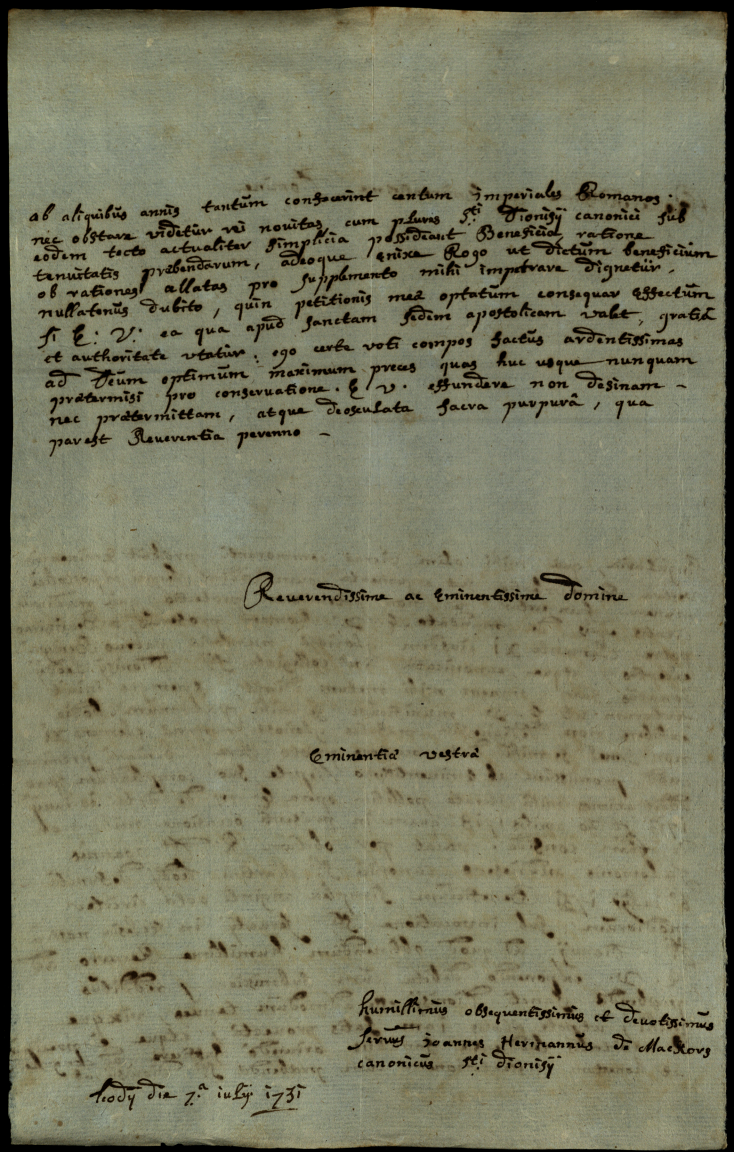 ab aliquibus annis tantum confecerint centum imperiales Romanos;
nec obstare videtur rei novitas, cum plures Sti Dionisÿ canonici sub
eodem tecto actualiter simplicia possideant Beneficia ratione
tenuitatis præbendarum, adeoque enixe Rogo ut dictum beneficium
ob rationes allatas pro supplemento mihi impetrare dignetur,
nullatenus dubito, quin petitionis meæ optatum consequar effectum
si E: V: ea qua apud sanctam sedem apostolicam valet, gratia
et authoritate vtatur, ego certe voti compos factus ardentissimas
ad Deum optimum maximum preces quas huc usque nunquam
prætermisi pro conservatione E V. effundere non desinam -
nec prætermittam, atque deosculata sacra purpurâ, qua
par est Reverentia perenno -
Reverendissime ac Eminentissime Domine
Eminentiæ vestræ
humillimus obsequentissimus et devotissimus
servus ioannes Hermannus De Mackors
canonicus Sti Dionisÿ
Leodÿ die 7.a iulÿ 1731